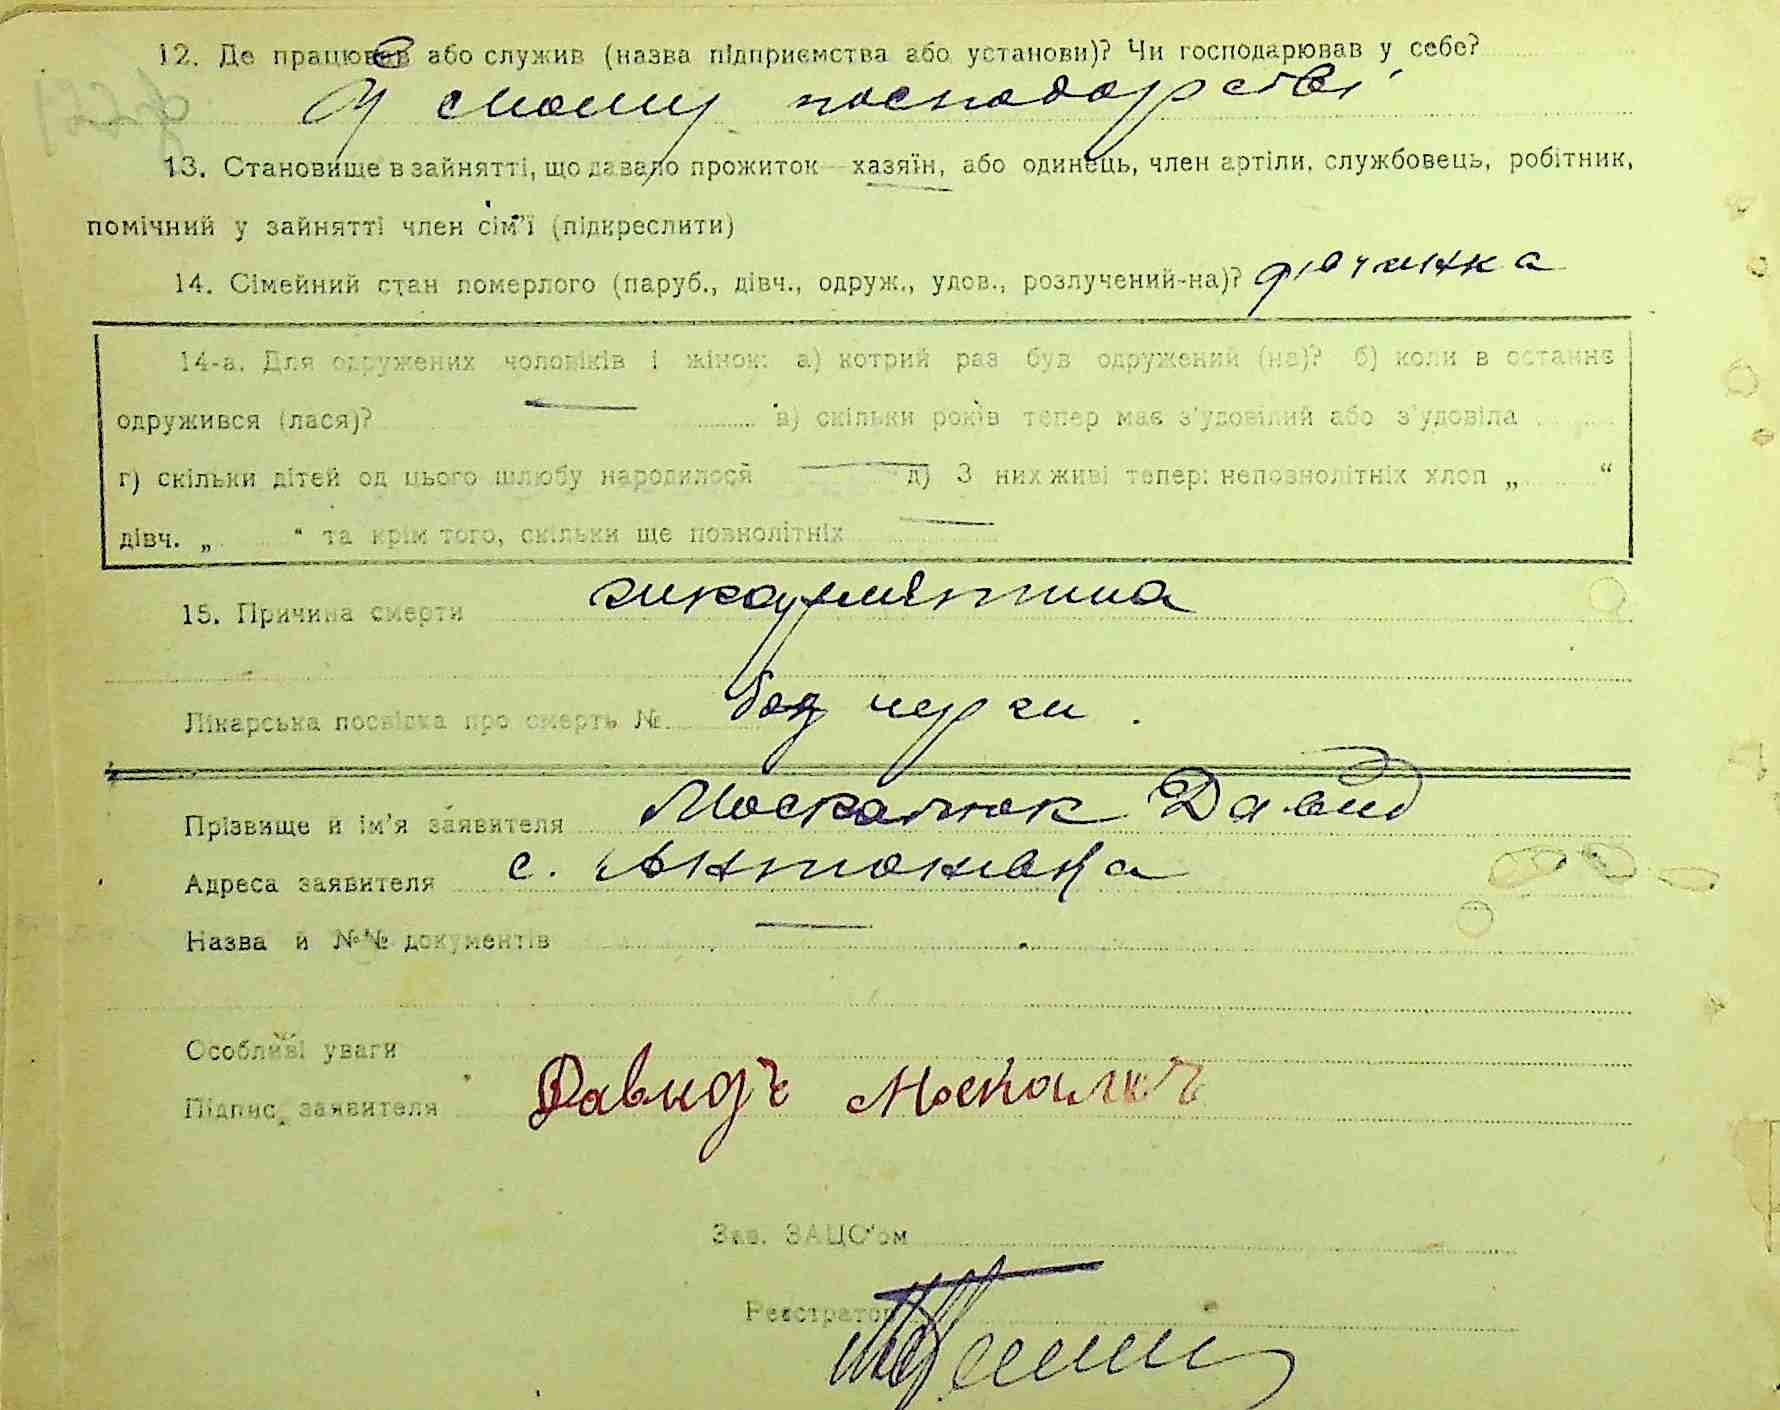 12. Де працював або служив (назва підприємства або установи)? Чи господарював у себе?
У своему господарстві
13. Становище в зайнятті, що давало прожиток — хазяїн, або одинець, член артіли, службовець, робітник,
помічний у зайнятті член сім'ї (підкреслити)
14. Сімейний стан померлого (паруб., дівч., одруж., удов., розлучений-на)? дівчинка
14-а. Для одружених чоловіків і жінок: а) котрий раз був одружений (на)? б) коли в останнє
одружився (лася)? — в) скільки років тепер має з'удовілий або з'удовіла
г) скільки дітей од цього шлюбу народилося — д) З них живі тепер: неповнолітніх хлоп „ “
дівч. „ “ та крім того, скільки ще повнолітніх —
15. Причина смерти шкарлятина
Лікарська посвідка про смерть №
Прізвище й ім'я заявителя Москалюк Давид
Адреса заявителя с. Антоновка
Назва й №№ документів —
Особливі уваги
Підпис заявителя Давидъ Москалюк
Зав. ЗАЦС'ом
Реєстратор